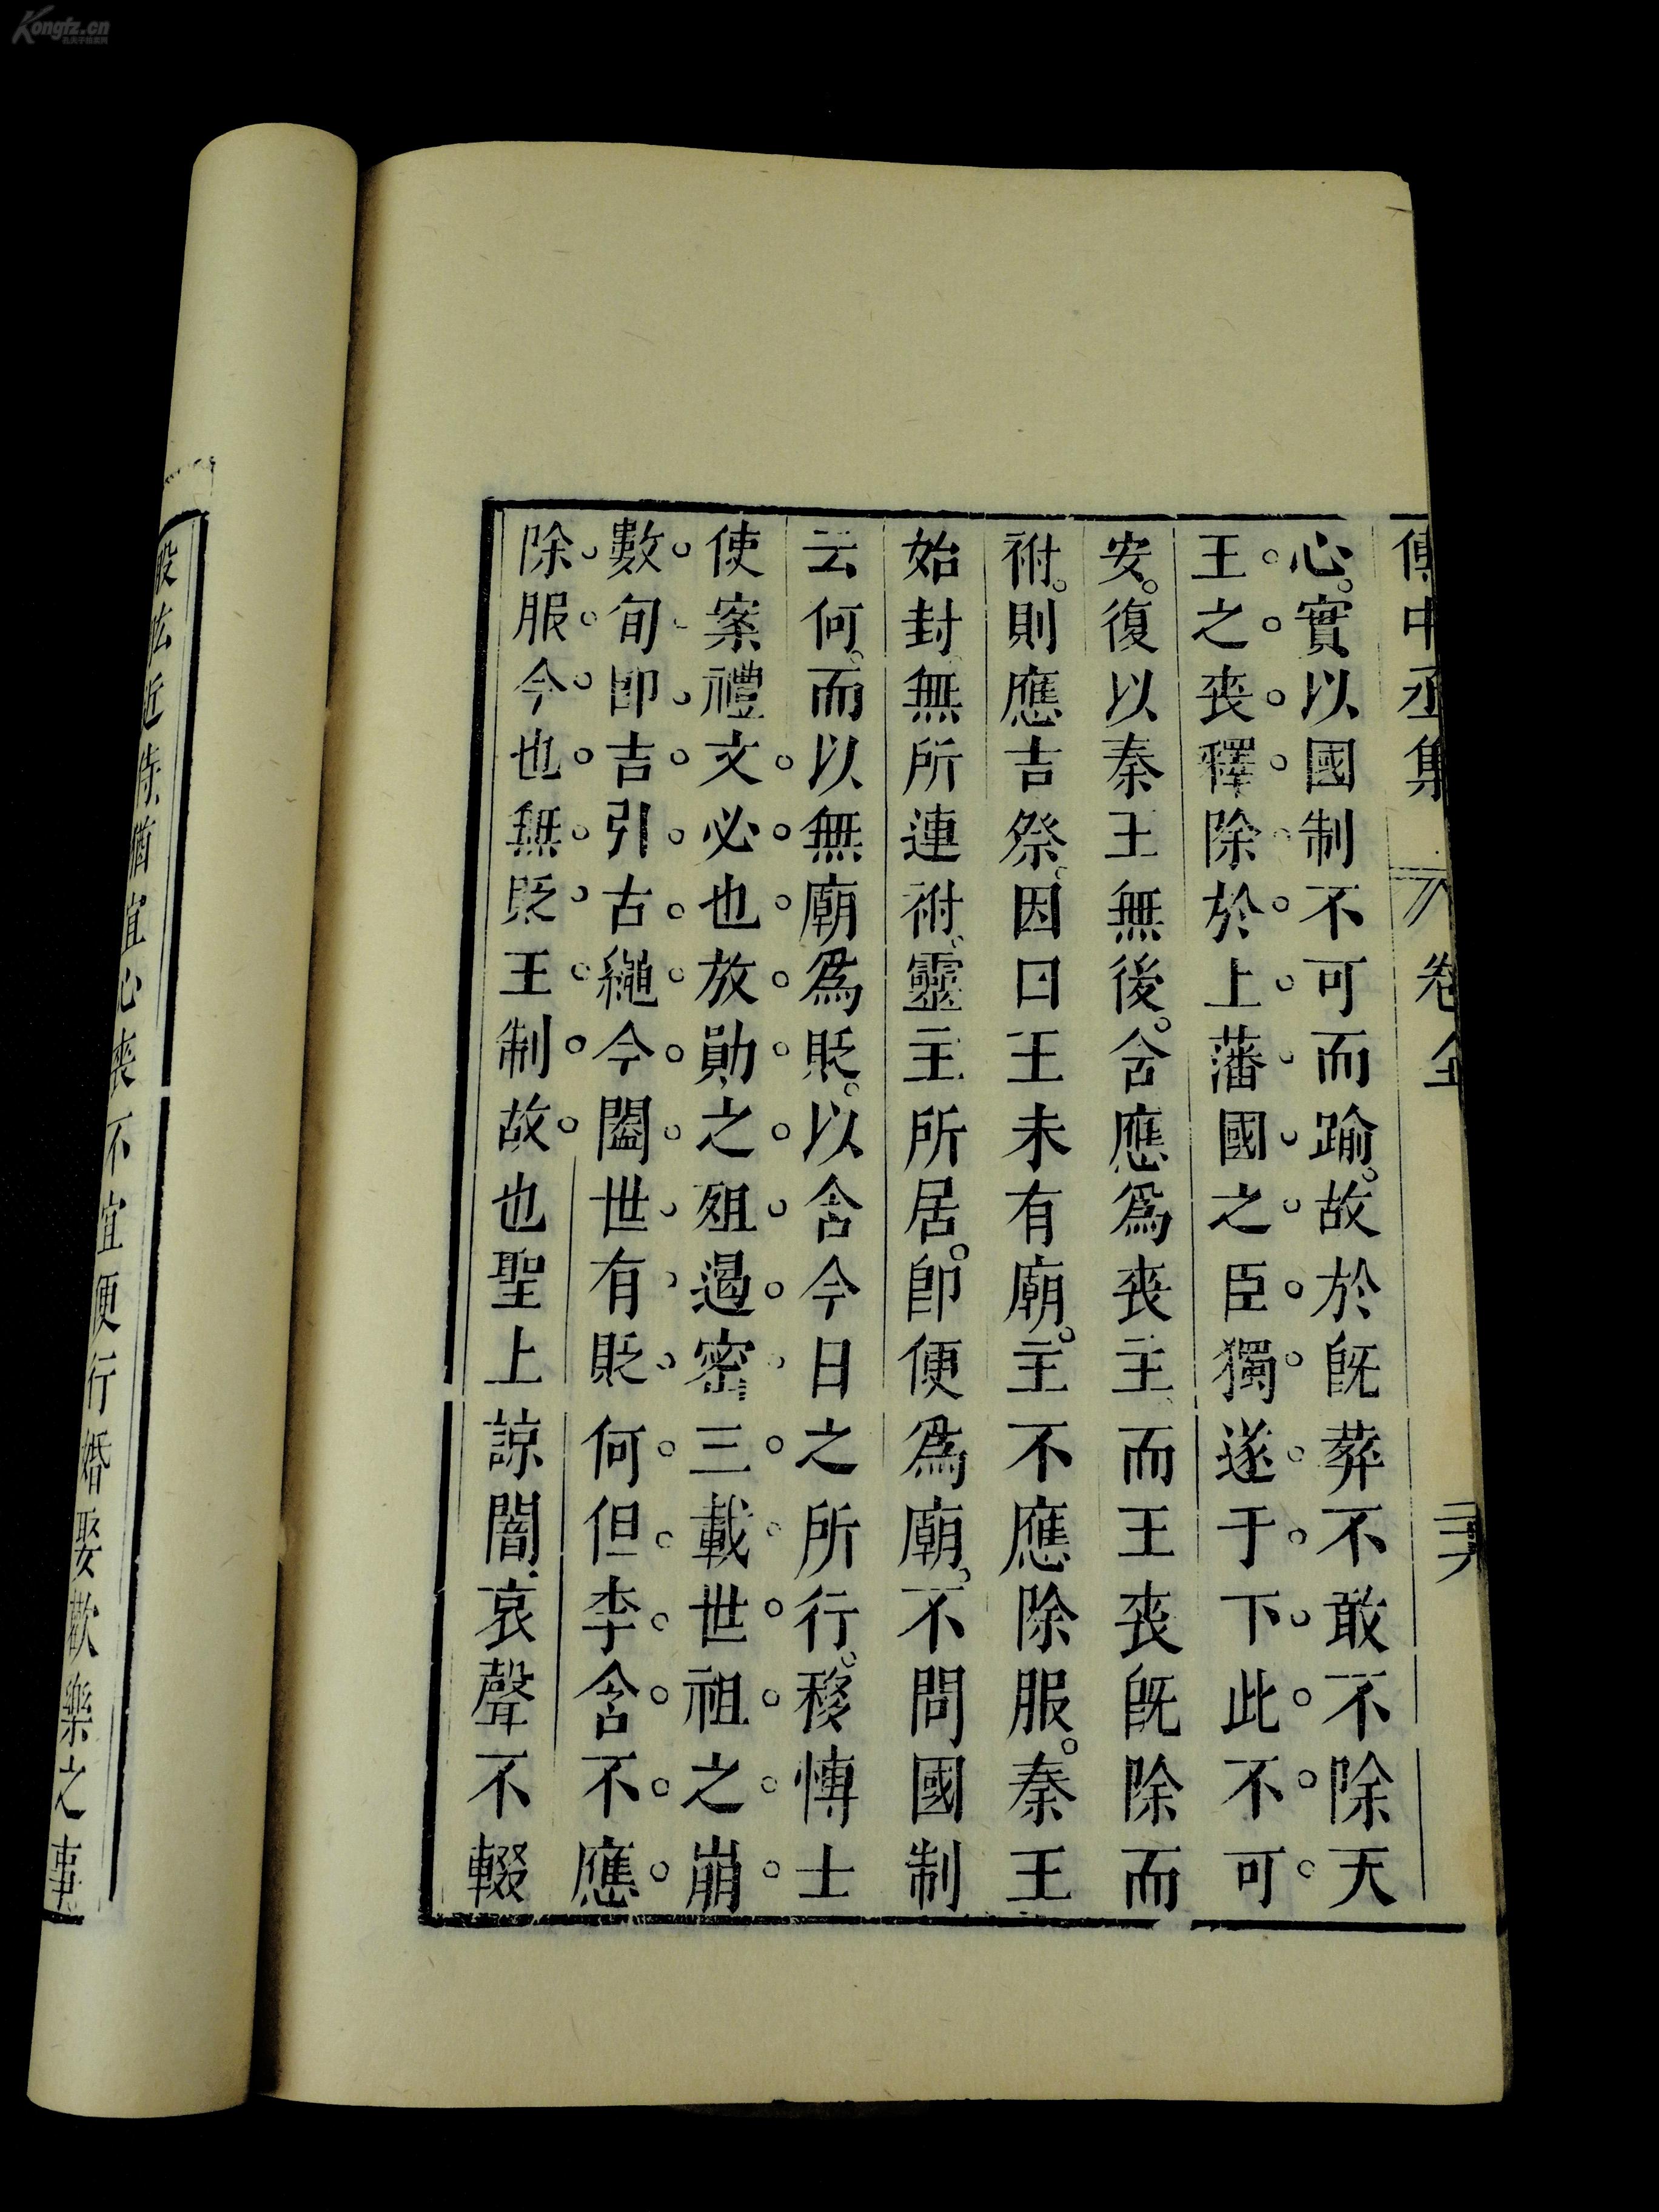 傅中丞集
卷全
二六
心。實以國制不可而踰。故於旣葬不敢不除天
王之喪釋除於上藩國之臣獨遂于下此不可
安。復以秦王無後。含應爲喪主、而王喪旣除而
祔。則應吉祭、因曰王未有廟。主不應除服。秦王
始封、無所連祔、靈主所居。卽便爲廟。不問國制
云何。而以無廟爲貶。以含今日之所行。移慱士
使案禮文必也放勛之殂遏密三載世祖之崩
數旬卽吉引古繩今闔世有貶何但李含不應
除服今也無貶王制故也聖上諒闇、哀聲不輟
股肱近侍猶宜心喪不宜便行婚娶歡樂之事
Kongfz.cn